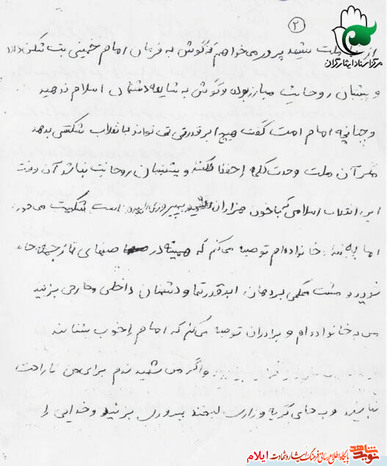 ۲
مرکز اسناد ایثارگران
از ملت شهید پرور میخواهم که گوش به فرمان امام خمینی بت شکن دارد
و پشتیبان روحانیت مبارز بوده و گوش به شایعه دشمنان اسلام ندهید
و چنانچه امام امت گفت هیچ ابرقدرتی نمی تواند به انقلاب شکستی بدهد
مگر آن ملت وحدت کلمه را حفظ نکند و پشتیبان روحانیت نباشد آن وقت
این انقلاب اسلامی که با خون هزاران شهید است شکست می خورد
اما به خانواده ام توصیه می کنم که همیشه در صفهای نماز جمعه
شوید و مشت محکمی بر دهان ابرقدرتها و دشمنان داخلی و خارجی بزنید
من به خانواده ام و برادران توصیه می کنم که امام را خوب بشناسند
و اگر من شهید شدم برای من ناراحت
نباشید و به جای گریه و زاری لبخند پیروزی بزنید و خدایی را
نوید شاهد
پایگاه اطلاع رسانی فرهنگ ایثار و شهادت ایلام